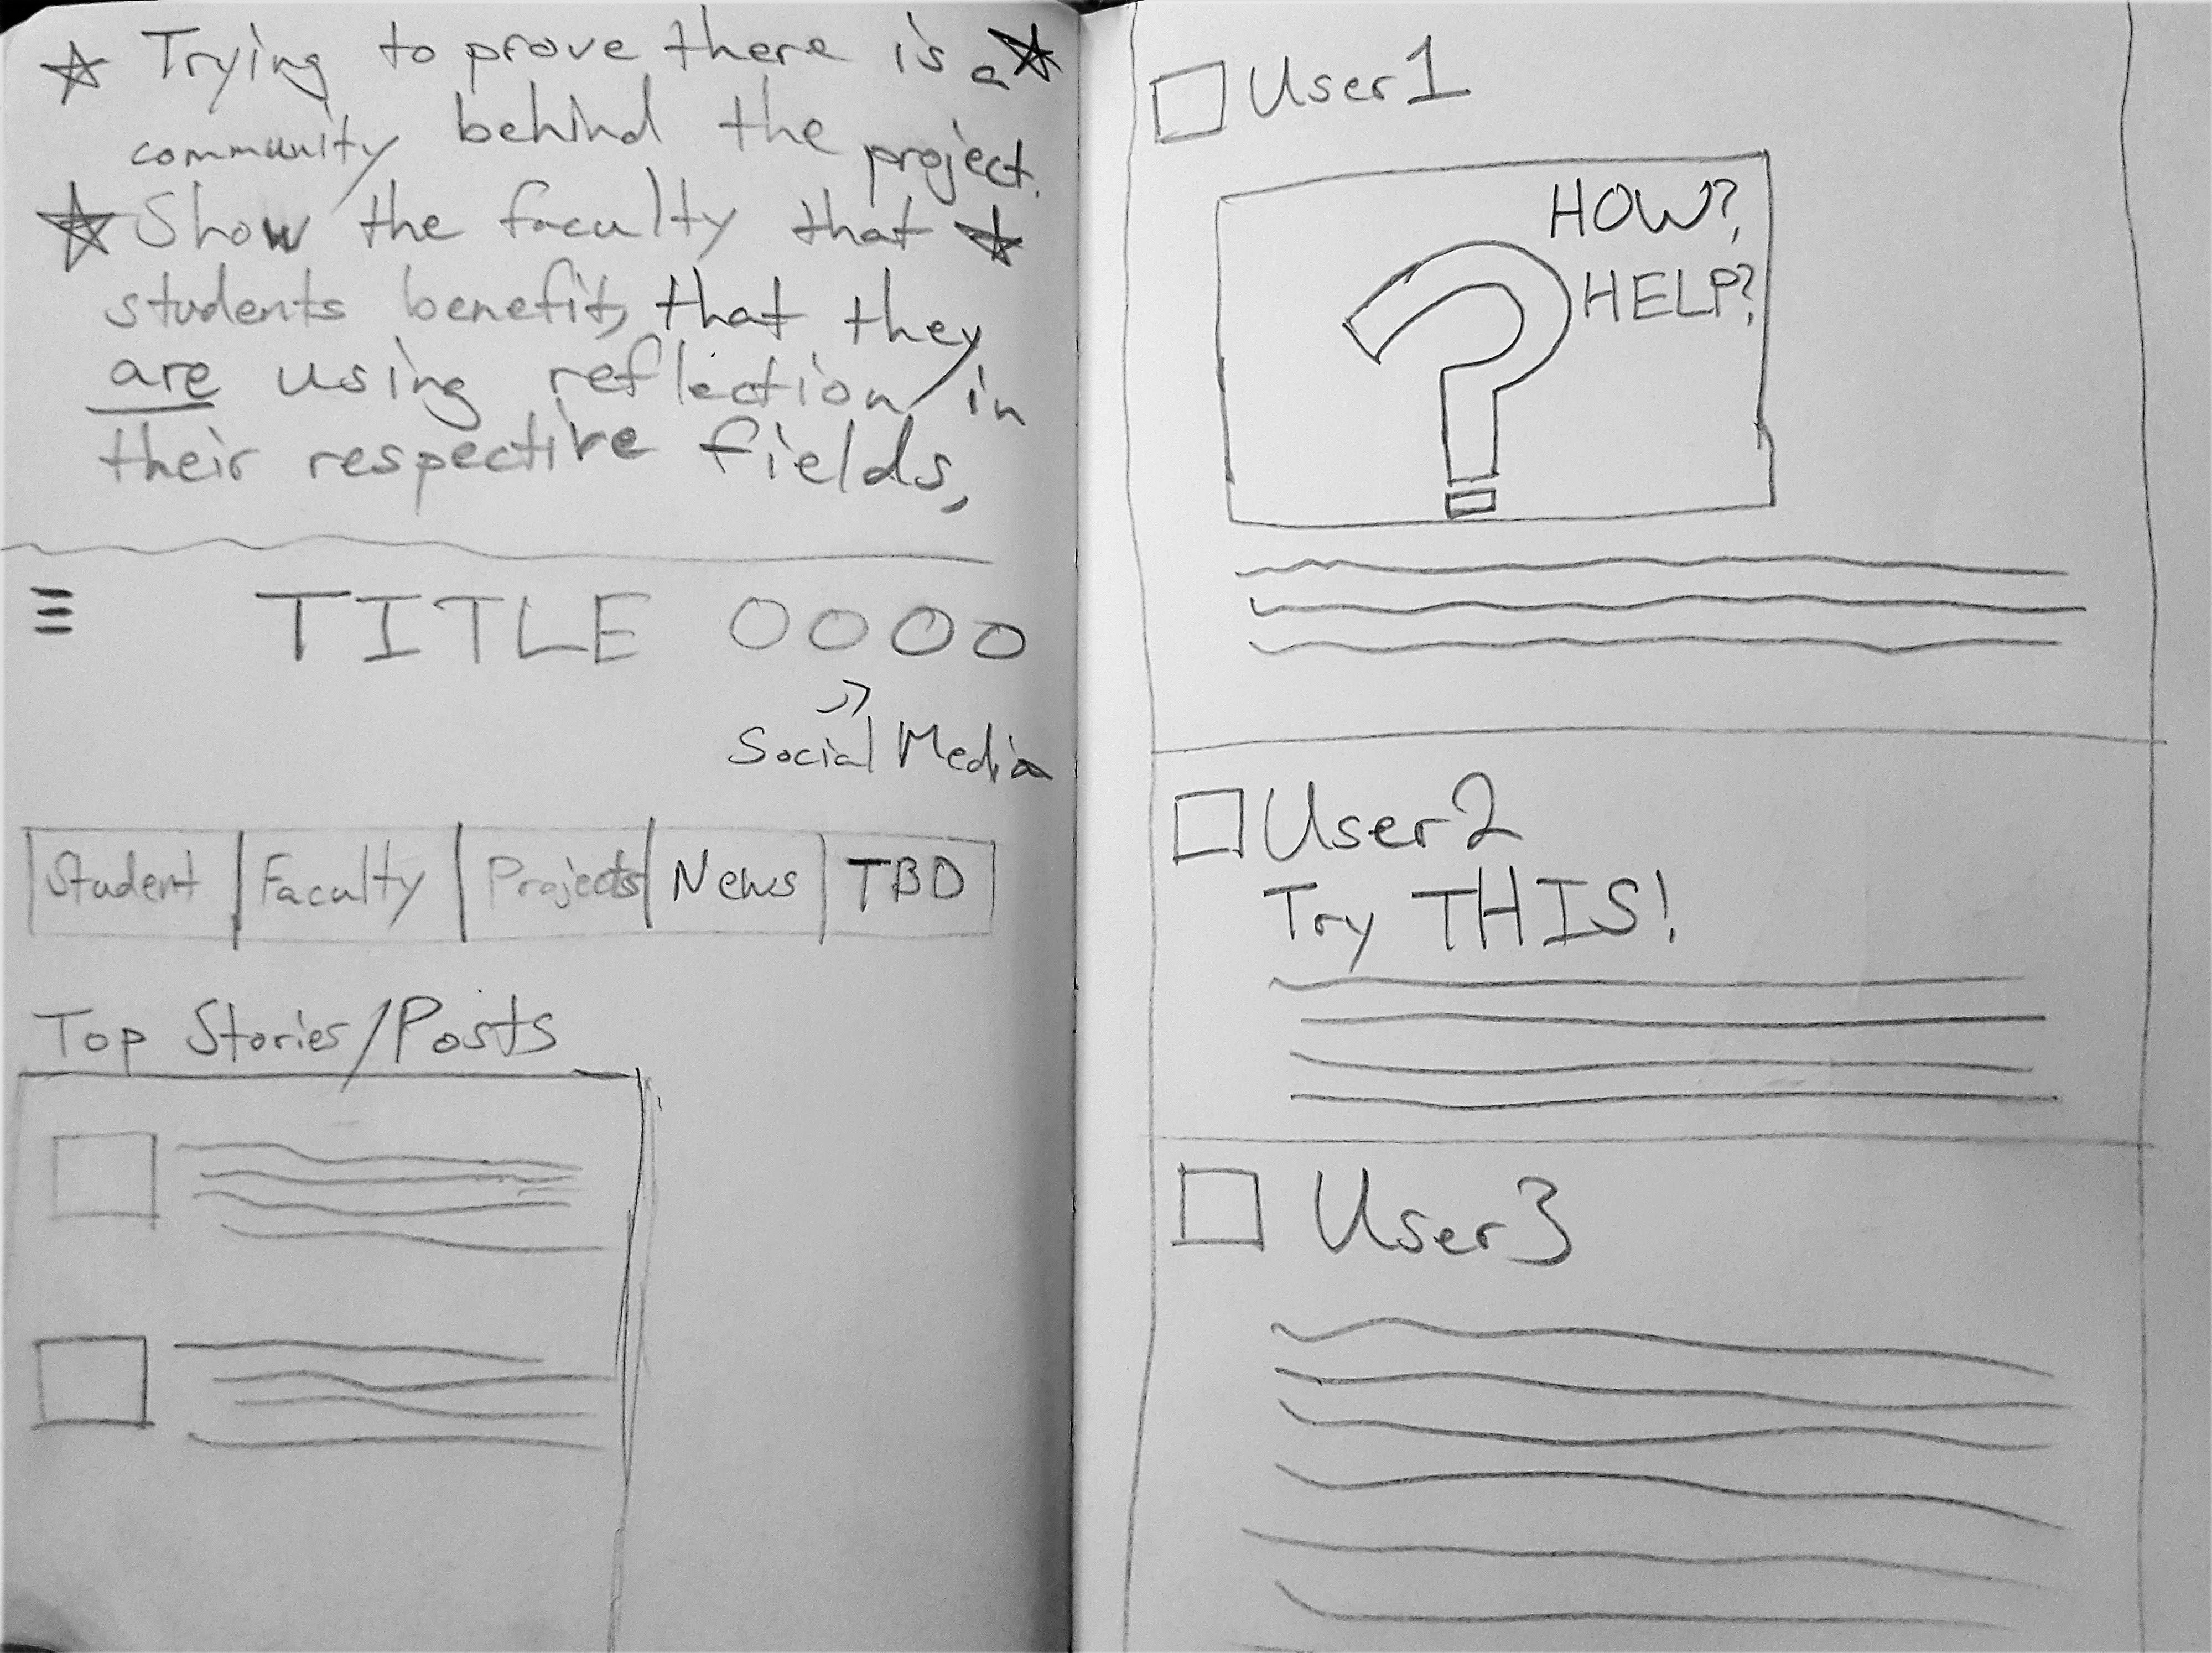 Trying to prove there is a
community behind the project.
Show the faculty that
students benefit, that they
are using reflection in
their respective fields,
TITLE
Social Media
Student Faculty Projects News TBD
Top Stories/Posts
User1
HOW?
HELP?
User2
Try THIS!
User3